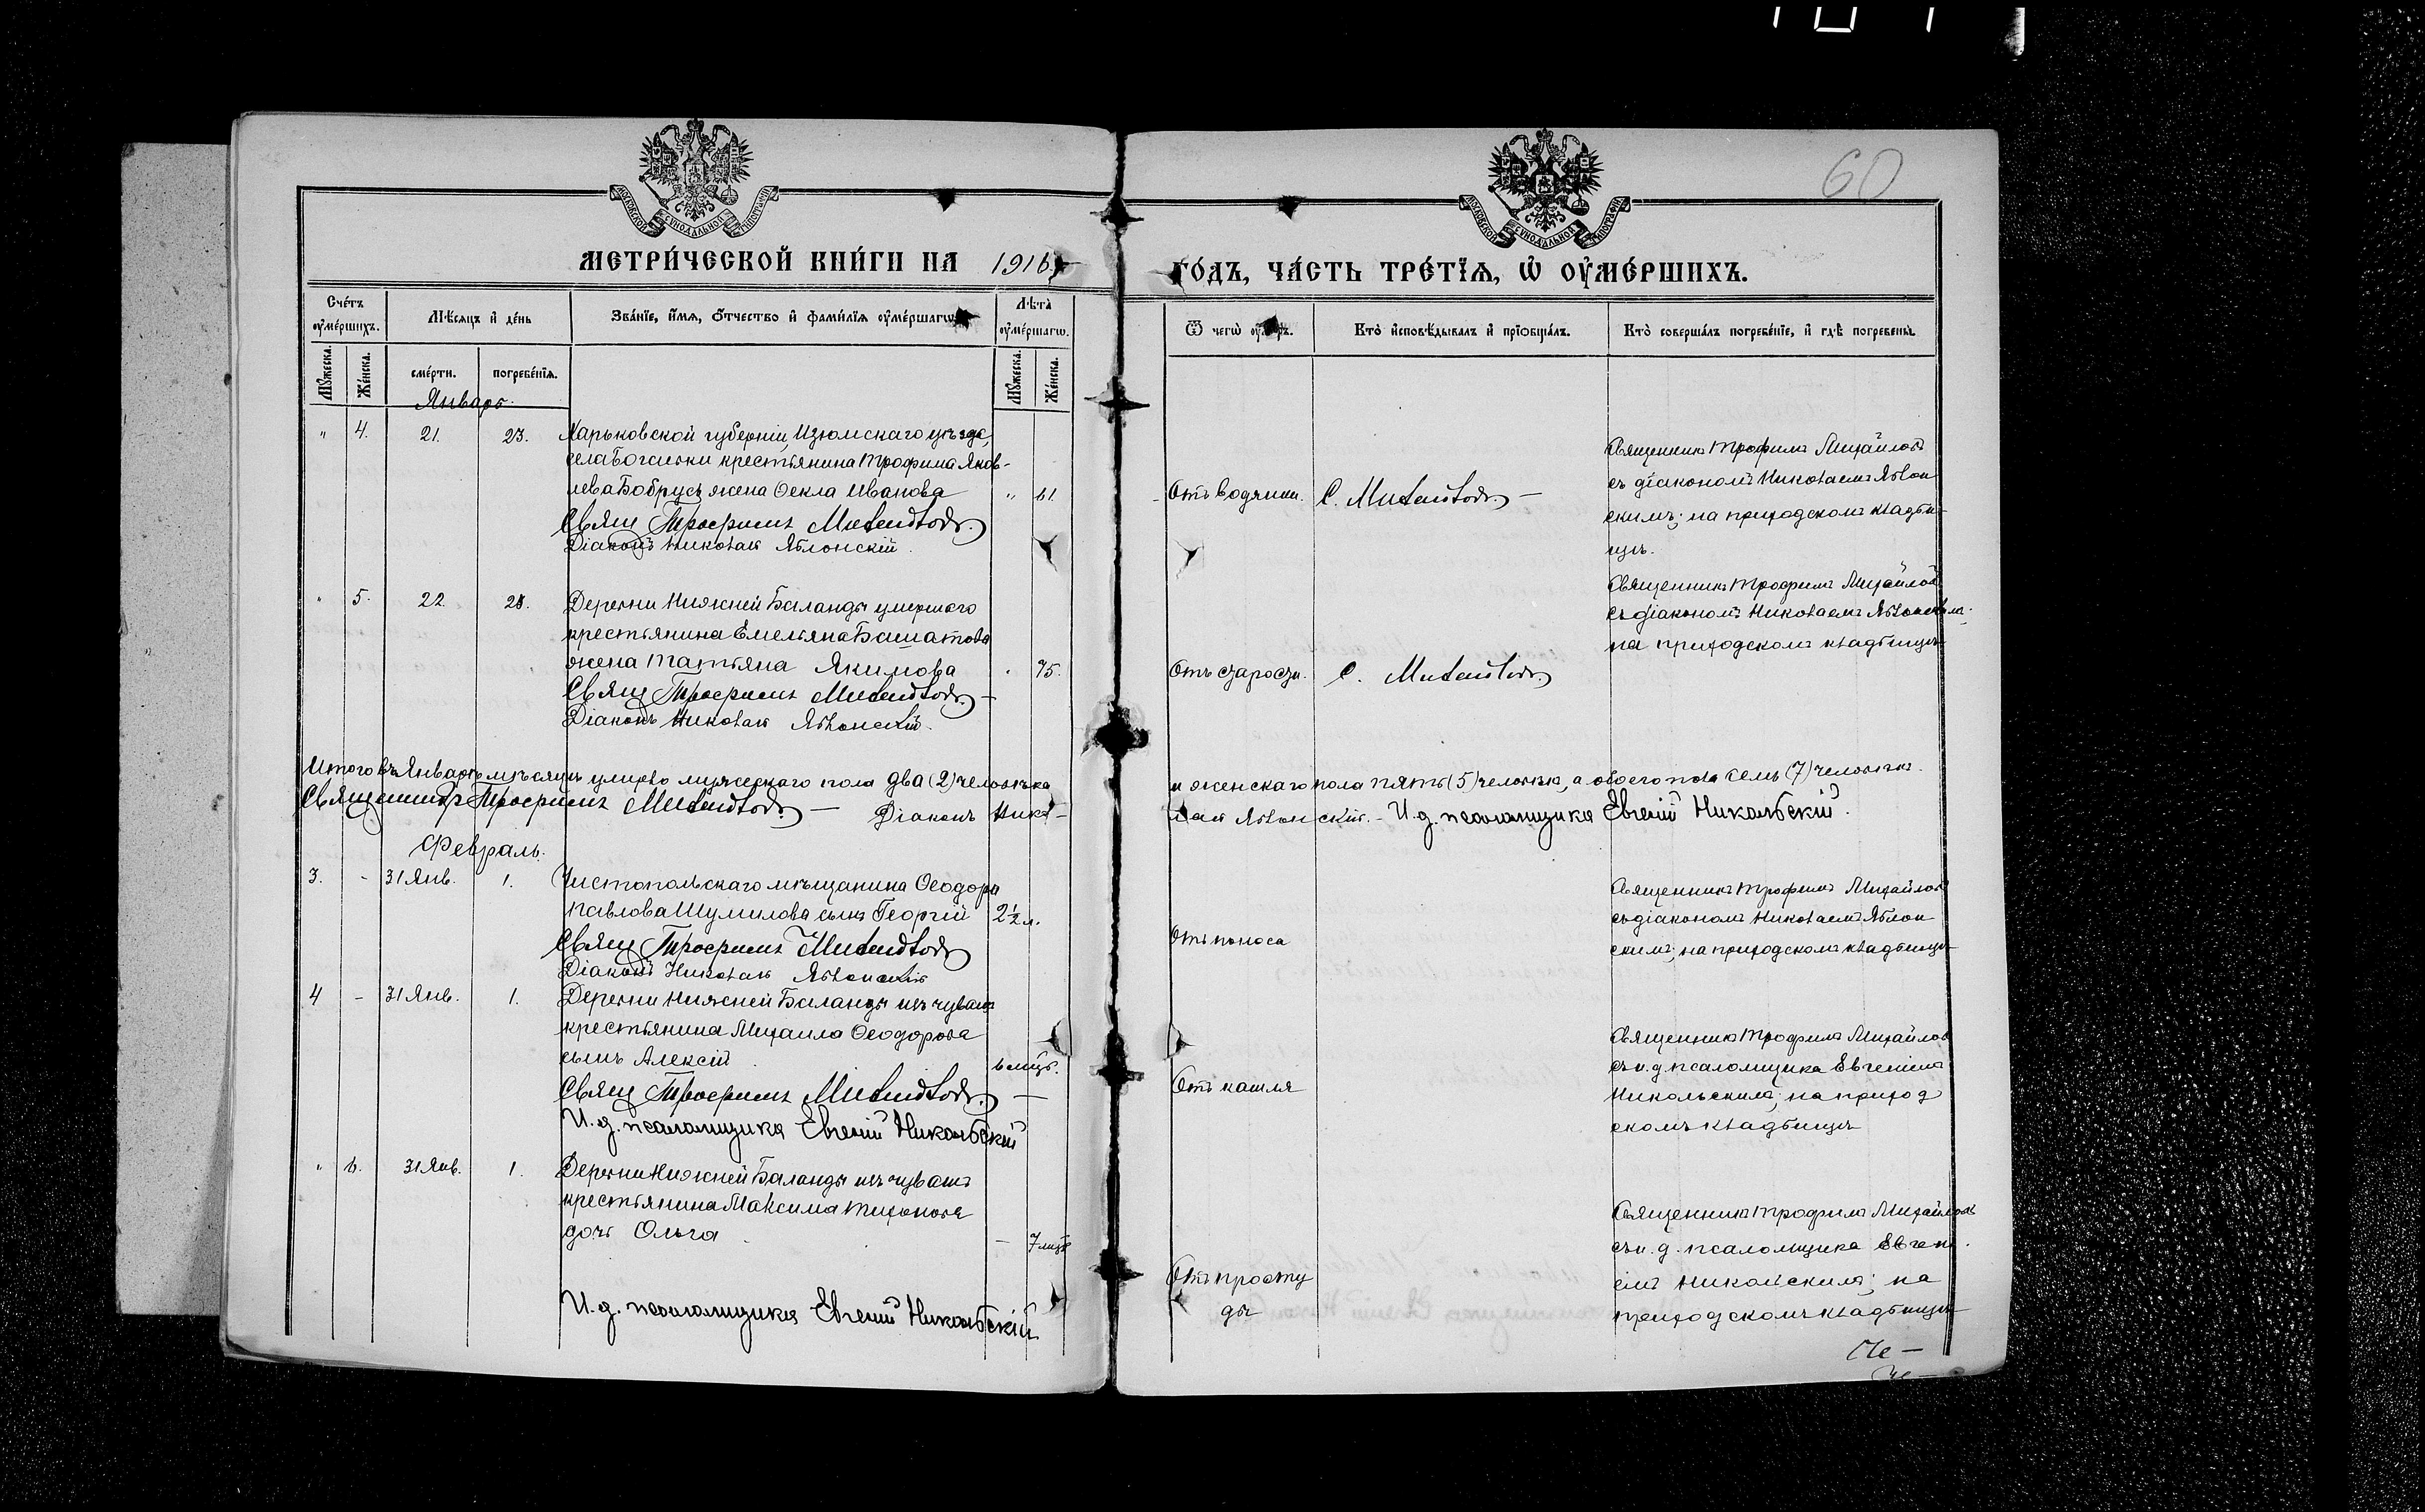 60
МЕТРИ́ЧЕСКОЙ КНИ́ГИ НА 1916
ГО́ДЪ, ЧА́СТЬ ТРЕ́ТЇѦ, Ѡ҆ ОУ҆МЕ́РШИХЪ.
Сче́тъ оу҆ме́ршихъ.
Мѣ́сяцъ и҆ де́нь
Зва́нїе, и҆́мя, ѻ҆́тчество и҆ фами́лїя оу҆ме́ршагѡ
Лѣта̀ оу҆ме́ршагѡ.
Ѿ чегѡ̀
Кто̀ и҆сповѣ́дывалъ и҆ прїѡбща́лъ.
Кто̀ соверша́лъ погребе́нїе, и҆ гдѣ̀ погребены̀
Мꙋ́жеска.
Же́нска.
сме́рти.
погребе́нїя.
Мꙋ́жеска.
Же́нска.
Январь.
" 4. 21. 23. Харьковской губерніи, Изюмскаго уѣзда,
села крестьянина Трофима Яков-
лева Бобрусь жена Ѳекла Иванова " 61
Свящ Трофимъ Михайловъ.
Діаконъ Николай Яблонскій.
Отъ водянки. С. Михайловъ. —
Священникъ Трофимъ Михайловъ
съ діакономъ Николаемъ Яблон
скимъ; на приходскомъ кладби-
щѣ.
" 5. 22. Деревни Нижней Баланды умершаго
крестьянина Емельяна Башатова
жена Татьяна Якимова " 75.
Свящ Трофимъ Михайловъ. —
Діаконъ Николай Яблонскій.
Отъ старости. С. Михайловъ.
Священникъ Трофимъ Михайловъ
съ діакономъ Николаемъ Яблонскимъ;
на приходскомъ кладбищѣ
Итого въ Январѣ мѣсяцѣ умерло мужескаго пола два (2) человѣка
и женскаго пола пять (5) человѣкъ, а обоего пола семь (7) человѣкъ.
Священникъ Трофимъ Михайловъ. — Діаконъ Нико-
лай Яблонскій. - И.д. псаломщика Евгеній Никольскій.
Февраль.
3. - 31 Янв. 1. Чистопольскаго мѣщанина Ѳеодора
Павлова Шумилова сынъ Георгій 2½ л.
Свящ Трофимъ Михайловъ
Діаконъ Николай Яблонскій
Отъ поноса
Священникъ Трофимъ Михайловъ
съ діакономъ Николаемъ Яблон
скимъ; на приходскомъ кладбищѣ
4 - 31 Янв. 1. Деревни Нижней Баланды изъ чувашъ
крестьянина Михаила Ѳеодорова
сынъ Алексій 6 мѣс.
Свящ Трофимъ Михайловъ. —
И.д. псаломщика Евгеній Никольскій
Отъ кашля
Священникъ Трофимъ Михайловъ
съ и.д. псаломщика Евгеніемъ
Никольскимъ; на приход
скомъ кладбищѣ
" 6. 31 Янв. 1. Деревни Нижней Баланды изъ чувашъ
крестьянина Максима Тихонова
дочь Ольга - 7 мѣс
И.д. псаломщика Евгеній Никольскій
Отъ просту
ды
Священникъ Трофимъ Михайловъ
съ и.д. псаломщика Евгені
емъ Никольскимъ; на
приходскомъ кладбищѣ